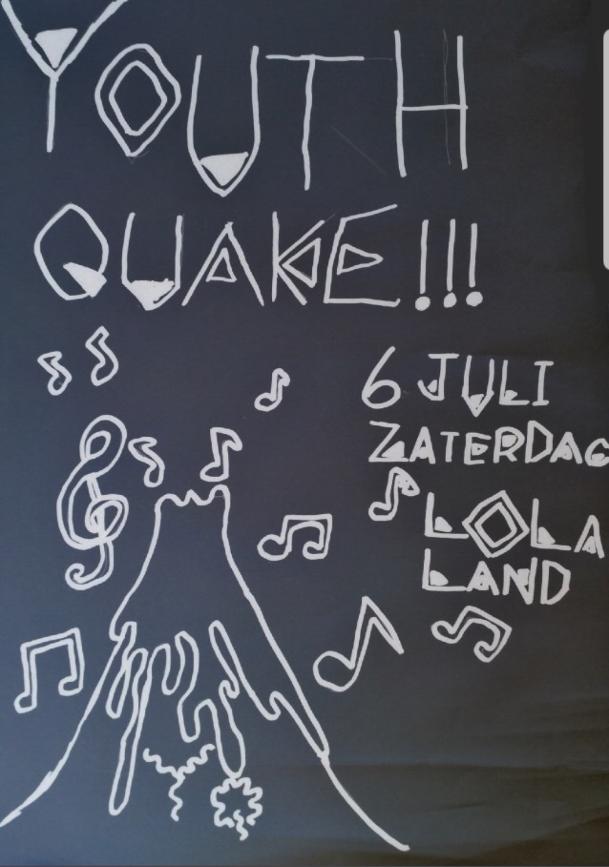 YOUTH
QUAKE!!!
6 JULI
ZATERDAG
LOLA
LAND